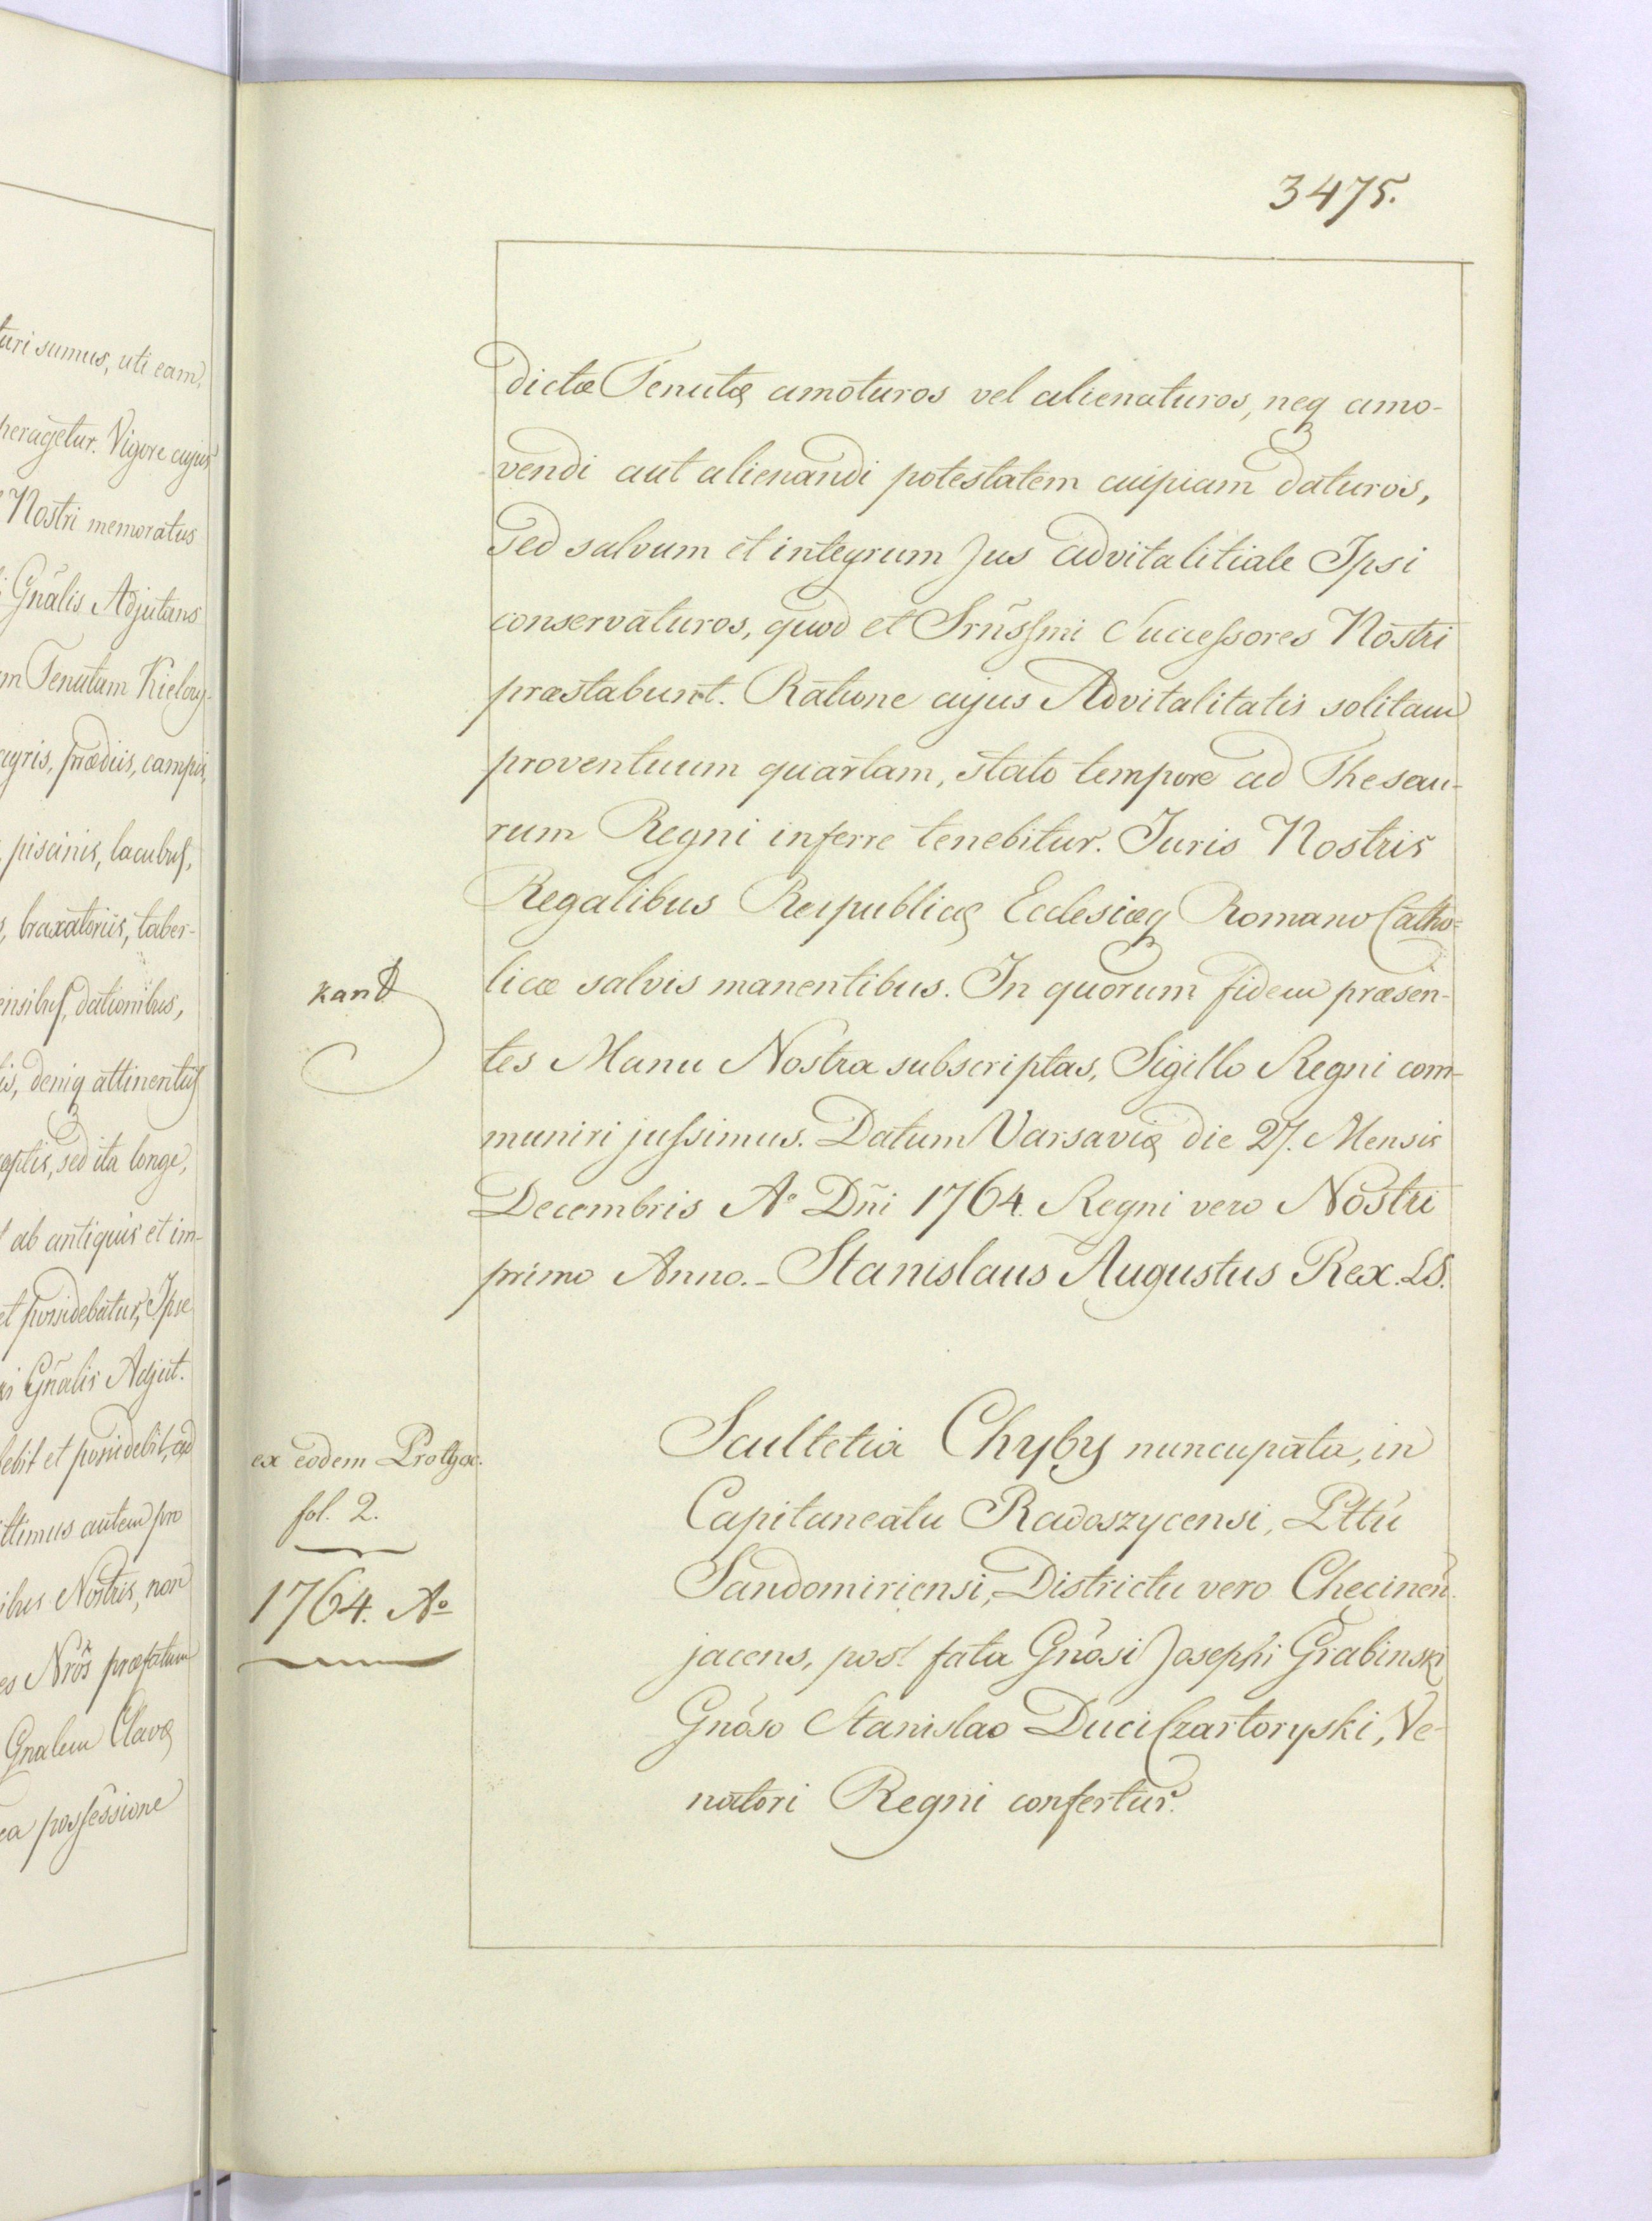 3475.
turi sumus, uti eam
peragetur. Vigore cujus
Nostri memoratus
Gn̄alis Adjutans
m Tenutam Kielow-
agris, prædiis, campis,
piscinis, lacubus,
braxatoriis, taber-
ensibus, dationibus,
is, deniq attinentiis
eptis, sed ita longe,
ab antiquis et im-
et possidebatur, Ipse
Gn̄alis Adjut.
ebit et possidebit, ad
ttimus autem pro
ibus Nostris, non
es Nr̄os præfatum
Gnalem Clavæ
ea possessione
dictæ Tenutæ amoturos vel alienaturos, neq amo-
vendi aut alienandi potestatem cuipiam daturos,
Sed salvum et integrum Jus advitalitiale Ipsi
conservaturos, quod et Srn̄ssmi Successores Nostri
præstabunt. Ratione cujus Advitalitatis solitam
proventuum quartam, stato tempore ad Thesau-
rum Regni inferre tenebitur. Juris Nostris
Regalibus Reipublicæ Ecclesiæq Romano Catho-
licæ salvis manentibus. In quorum fidem præsen-
kand
tes Manu Nostra subscriptas, Sigillo Regni com-
muniri jussimus. Datum Varsaviæ die 27. Mensis
Decembris Aº Dn̄i 1764. Regni vero Nostri
primo Anno.- Stanislaus Augustus Rex. LS.
ex eodem Protgoc.
fol. 2.
1764. Aº
Scultetia Chyby nuncupata, in
Capitaneatu Radoszycensi, Pttu
Sandomiriensi, Districtu vero Checinen̄
jacens, post fata Gn̄osi Josephi Grabinski
Gn̄oso Stanislao Duci Czartoryski, Ve-
natori Regni confertur.